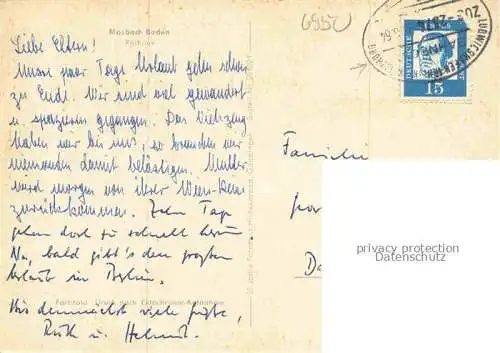 6950
Mosbach Baden
Liebe Eltern!
Unsere paar Tage Urlaub gehen schon
zu Ende. Wir sind viel gewandert
u. spazieren gegangen. Das Viehzeug
haben wir bei uns, so brauchen wir
niemanden damit belästigen. Mutter
wird morgen von ihrer Wien-Reise
zurückkommen. Zehn Tage
gehen doch zu schnell herum.
Na, bald gibt's den großen
Urlaub in Berlin.
Farbfoto Druck nach Ektachrome-Aufnahme
Bis demnächst viele Grüße,
Ruth u. Helmut.
DEUTSCHE
15
ZUG
2816
Familie
privacy protection
Datenschutz